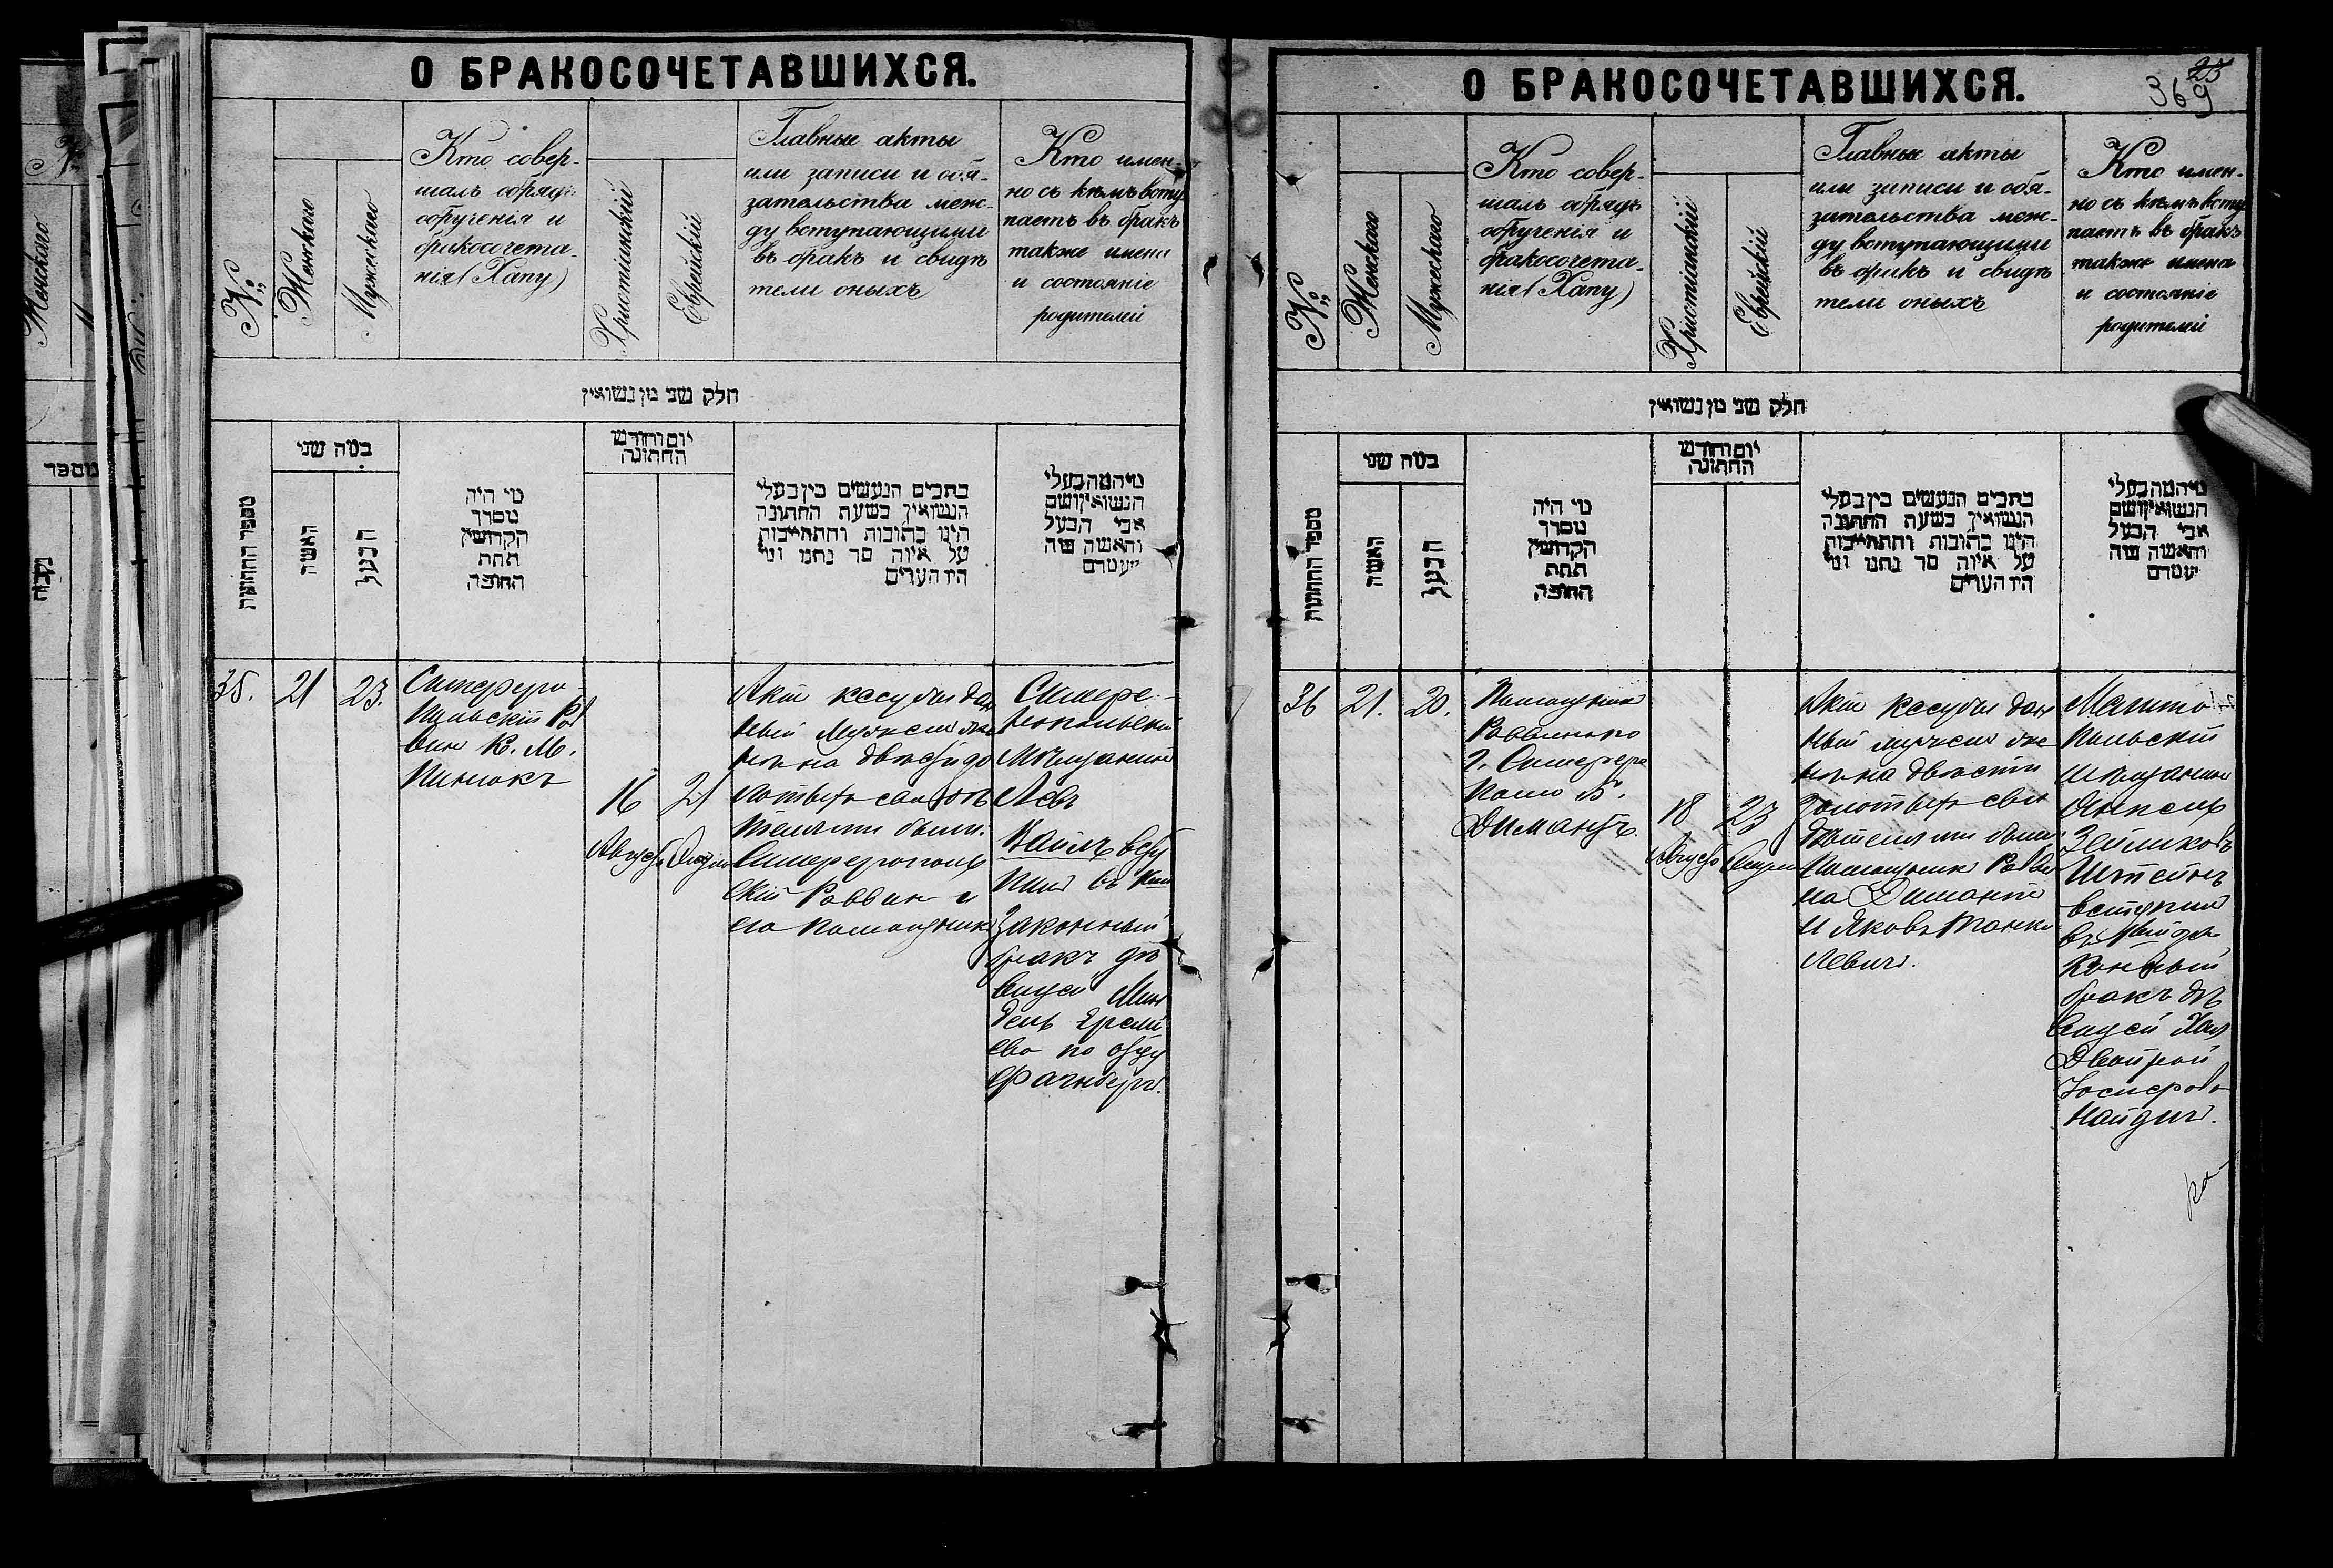 О БРАКОСОЧЕТАВШИХСЯ.
№
Женскаго
Мужескаго
Кто совер-
шалъ обрядъ
обрученія и
бракосочета-
нія (Хапу)
Христіанскій
Еврейскій
Главные акты
или записи и обя-
зательства меж-
ду вступающими
въ бракъ и свидѣ
тели оныхъ
Кто имен-
но съ кѣмъ всту
паетъ въ бракъ
также имена
и состояніе
родителей
חלק שני מן נשואין
מספר החתונות
כמה שני
האשה
הבעל
מי היה
מסדר
הקדושין
תחת
החופה
יום וחודש
החתונה
כתבים הנעשים בין בעלי
הנשואין בשעת החתונה
היינו כתובות והתחייבות
על איזה סך נתנו ומי
היו העדים
מי המה בעלי
הנשואין ושם
אבי הבעל
והאשה מה
מעמדם
35.
21
23.
Симферо
польскій Рав
винъ К. М.
Пинюкъ
16
Августа
21
Актъ кесубы дан
ный мужемъ же
нѣ на двѣсти зо
лотыхъ свидѣ
телями были
Симферополь
скій Раввинъ и
его помощникъ
Симфе-
ропольскій
мѣщанинъ
Левъ
всту
пилъ въ
законный
бракъ дѣ
вицей
по отцу
О БРАКОСОЧЕТАВШИХСЯ.
36 9
№
Женскаго
Мужескаго
Кто совер-
шалъ обрядъ
обрученія и
бракосочета-
нія (Хапу)
Христіанскій
Еврейскій
Главные акты
или записи и обя-
зательства меж-
ду вступающими
въ бракъ и свидѣ
тели оныхъ
Кто имен-
но съ кѣмъ всту
паетъ въ бракъ
также имена
и состояніе
родителей
חלק שני מן נשואין
מספר החתונות
כמה שני
האשה
הבעל
מי היה
מסדר
הקדושין
תחת
החופה
יום וחודש
החתונה
כתבים הנעשים בין בעלי
הנשואין בשעת החתונה
היינו כתובות והתחייבות
על איזה סך נתנו ומי
היו העדים
מי המה בעלי
הנשואין ושם
אבי הבעל
והאשה מה
מעמדם
36
21.
20.
Помощникъ
Раввина
г. Симферо
поля
Димантъ.
18
Августа
23
Актъ кесубы дан
ный мужемъ же
нѣ на двѣсти
золотыхъ сви
дѣтелями были
Помощникъ Равви
на Димантъ
и Яковъ Манко
левичъ.
Мелито
польскій
мѣщанинъ
Штейнъ
вступилъ
въ
законный
бракъ дѣ
вицей Хая
Двойрой
Іосифово
Найдичъ.